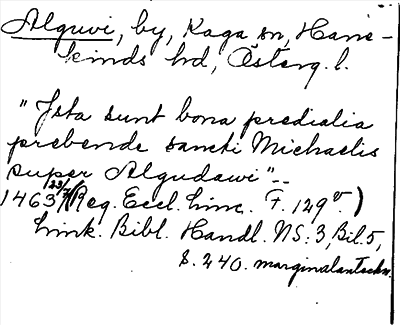 Alguvi, by, Kaga sn, Hane-
kinds hd, Österg. l.
"Ista sunt bona predialia
prebende sancti Michaelis
super Algudawi"--
1463 23/7 (Reg. Eccl. Linc. F. 129v.)
Link. Bibl. Handl. NS: 3, Bil. 5,
s. 240. marginalanteckn.